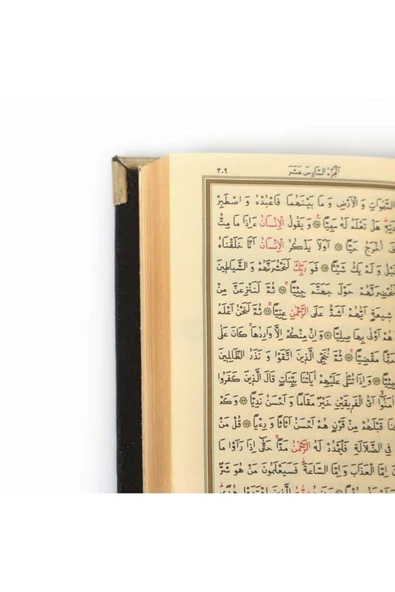 ٣٠٩ اَلْجُزْءُ السَّادِسَ عَشَرَ
السَّمٰوَاتِ وَ الْاَرْضِ وَ مَا بَيْنَهُمَا فَاعْبُدْهُ وَ اصْطَبِرْ
هَلْ تَعْلَمُ لَهُ سَمِيًّا وَ يَقُولُ الْاِنْسَانُ ءَاِذَا مَا مِتُّ
اُخْرَجُ حَيًّا اَوَلَا يَذْكُرُ الْاِنْسَانُ اَنَّا خَلَقْنَاهُ
قَبْلُ وَ لَمْ يَكُ شَيْئًا فَوَ رَبِّكَ لَنَحْشُرَنَّهُمْ وَ الشَّيَاطِينَ
لَنُحْضِرَنَّهُمْ حَوْلَ جَهَنَّمَ جِثِيًّا ثُمَّ لَنَنْزِعَنَّ مِنْ
شِيعَةٍ اَيُّهُمْ اَشَدُّ عَلَى الرَّحْمٰنِ عِتِيًّا ثُمَّ لَنَحْنُ اَعْلَمُ
هُمْ اَوْلٰى بِهَا صِلِيًّا وَ اِنْ مِنْكُمْ اِلَّا وَارِدُهَا كَانَ عَلٰى
حَتْمًا مَقْضِيًّا ثُمَّ نُنَجِّي الَّذِينَ اتَّقَوْا وَ نَذَرُ الظَّالِمِينَ
وَ اِذَا تُتْلٰى عَلَيْهِمْ اٰيَاتُنَا بَيِّنَاتٍ قَالَ الَّذِينَ كَفَرُوا
اٰمَنُوا اَيُّ الْفَرِيقَيْنِ خَيْرٌ مَقَامًا وَ اَحْسَنُ نَدِيًّا وَ كَمْ
قَبْلَهُمْ مِنْ قَرْنٍ هُمْ اَحْسَنُ اَثَاثًا وَ رِءْيًا قُلْ مَنْ
فِي الضَّلَالَةِ فَلْيَمْدُدْ لَهُ الرَّحْمٰنُ مَدًّا حَتّٰى اِذَا رَاَوْا مَا
اِمَّا الْعَذَابَ وَ اِمَّا السَّاعَةَ فَسَيَعْلَمُونَ مَنْ هُوَ شَرٌّ